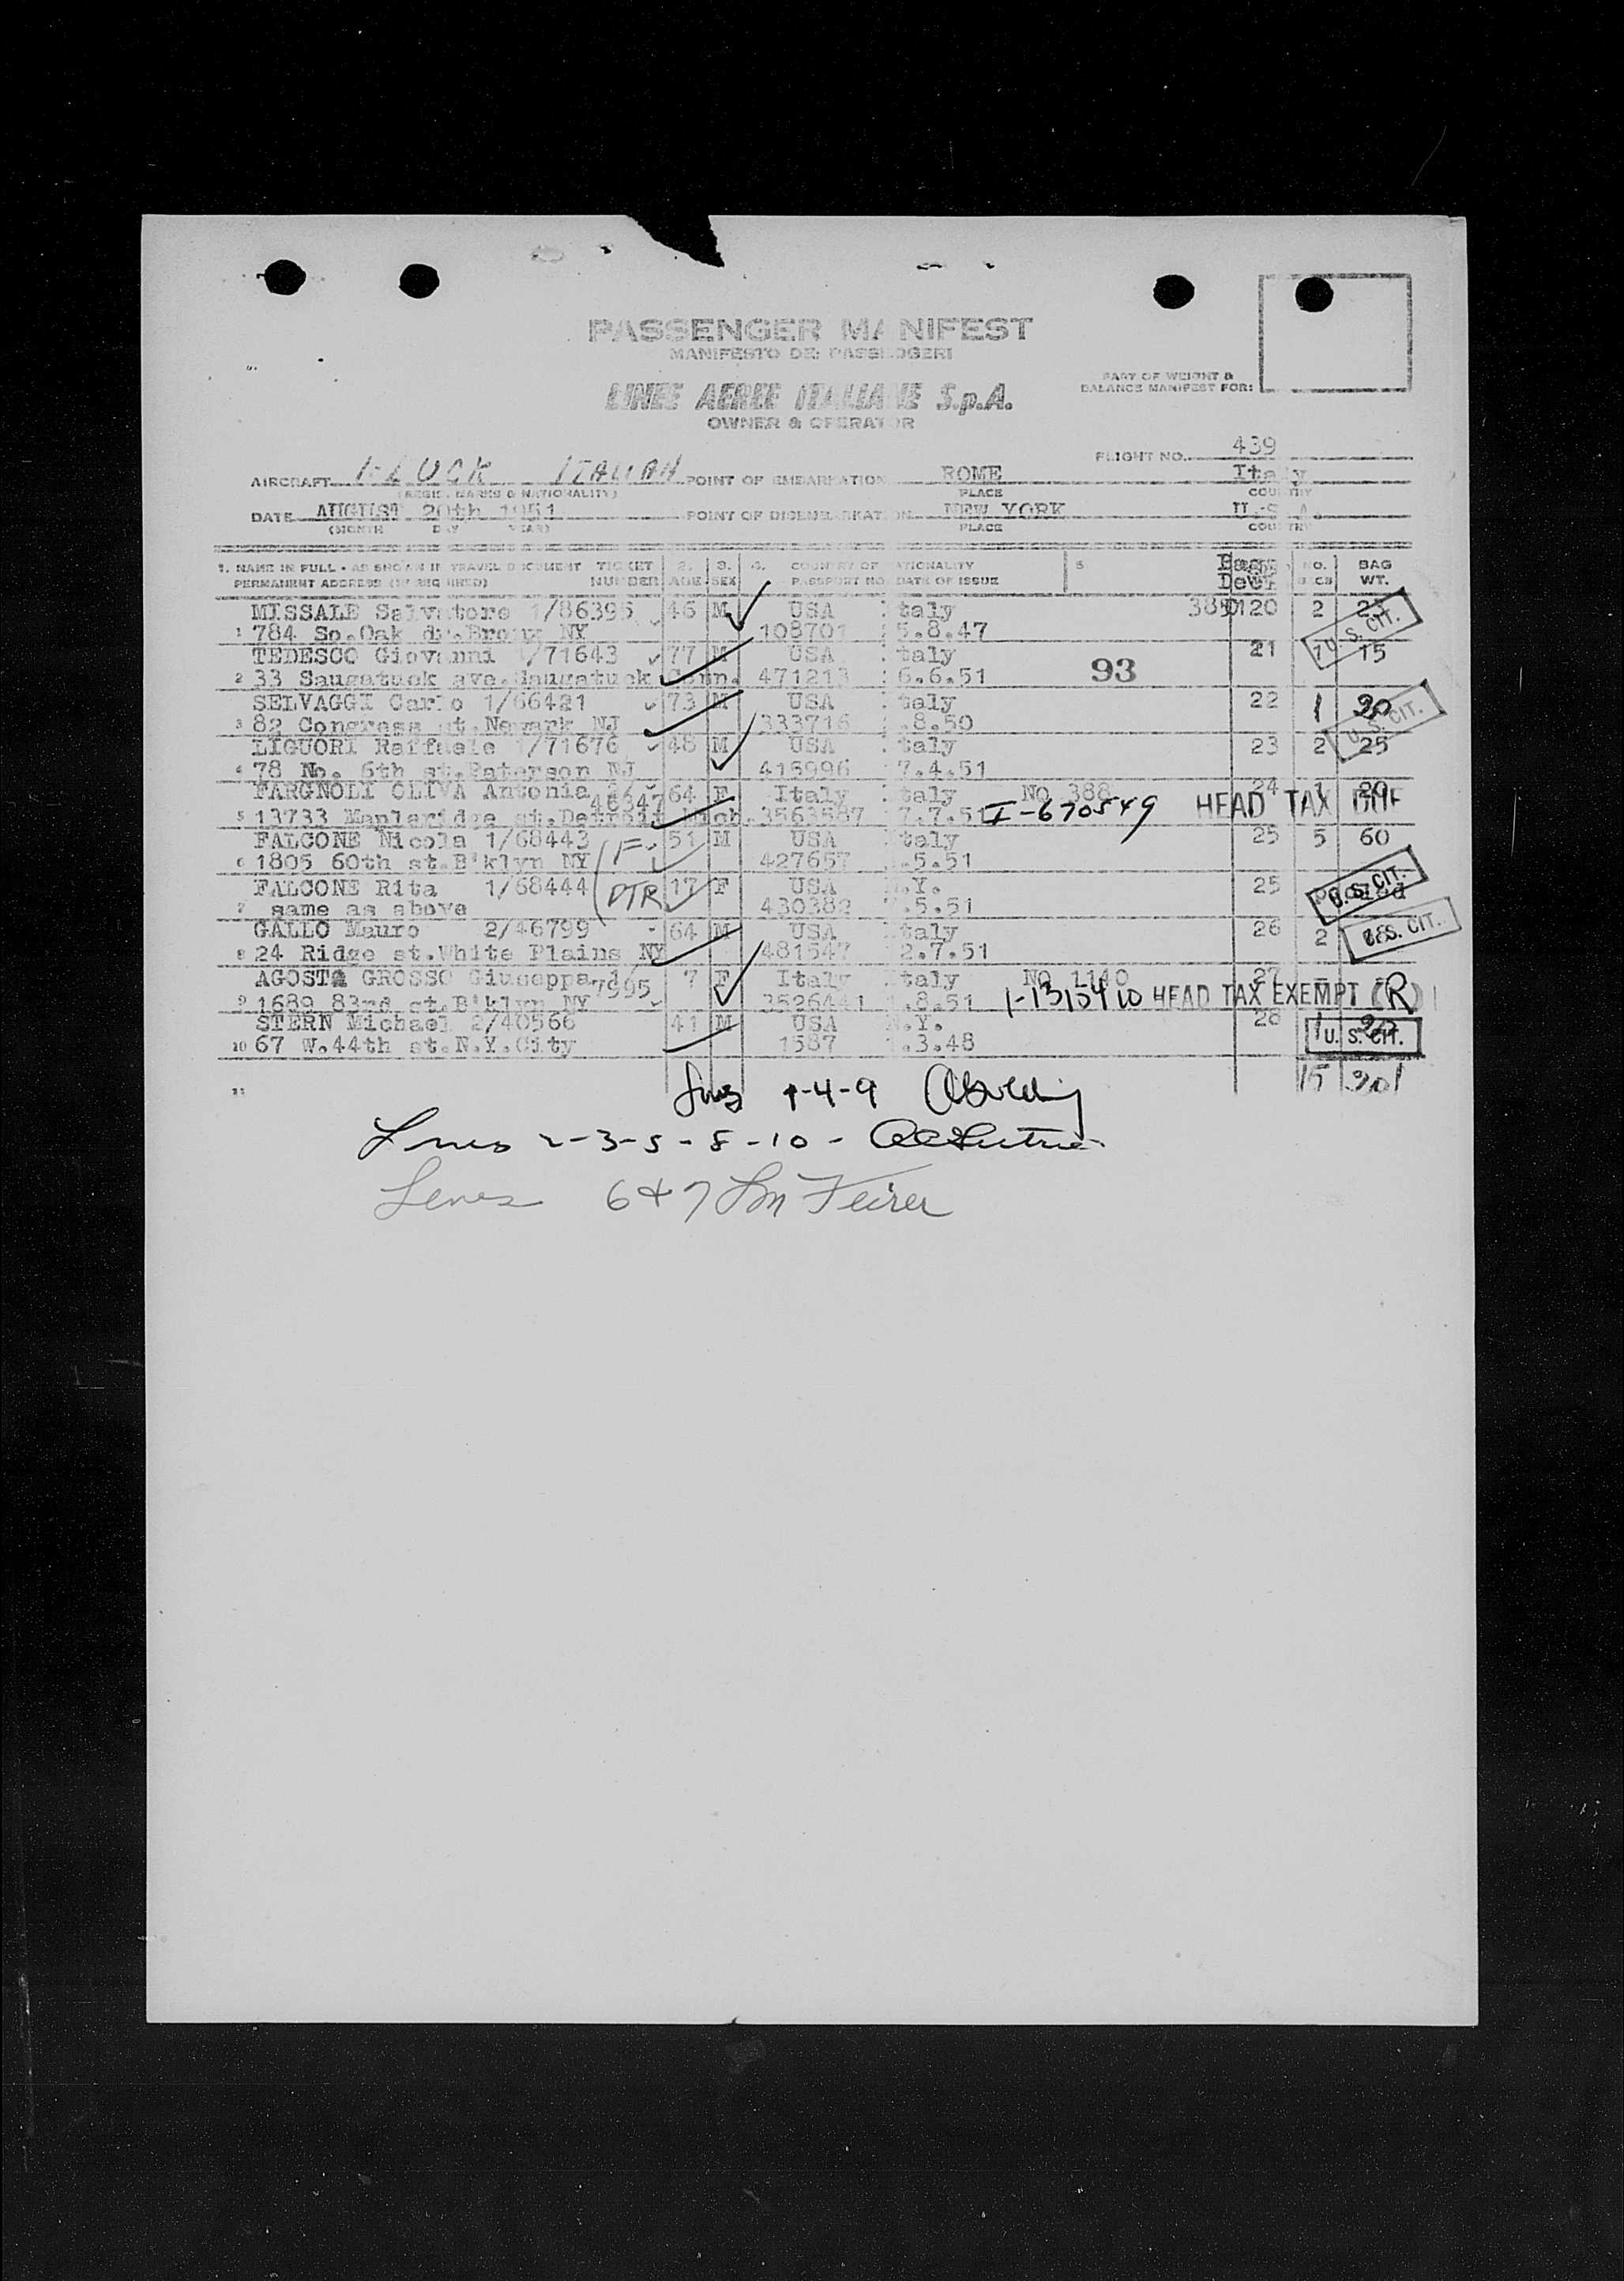 PASSENGER MANIFEST
MANIFESTO DEI PASSEGGERI
LINEE AEREE ITALIANE S.p.A.
OWNER & OPERATOR
PART OF WEIGHT &
BALANCE MANIFEST FOR:
FLIGHT NO. 439
AIRCRAFT I-LUCK ITALIAN POINT OF EMBARKATION ROME Italy
(REGIS. MARKS & NATIONALITY) PLACE COUNTRY
DATE AUGUST 20th 1951 POINT OF DISEMBARKATION NEW YORK U.S.A.
(MONTH DAY YEAR) PLACE COUNTRY
1. NAME IN FULL - AS SHOWN IN TRAVEL DOCUMENT TICKET 2. 3. 4. COUNTRY OF NATIONALITY 5 Bag. NO. BAG
PERMANENT ADDRESS (IF REQUIRED) NUMBER AGE SEX PASSPORT NO. DATE OF ISSUE WT.
MISSALE Salvatore 1/86395 46 M USA Italy 2
1 784 So.Oak dr.Bronx NY 108701 5.8.47 U.S. CIT.
TEDESCO Giovanni 1/71643 77 M USA Italy 21 15
2 33 Saugatuck ave.Saugatuck Conn. 471213 6.6.51 93
SELVAGGI Carlo 1/66421 73 M USA Italy 22 1 20
3 82 Congress st.Newark NJ 333716 .8.50 U.S. CIT.
LIGUORI Raffaele 1/71676 48 M USA Italy 23 2 25
4 78 No. 6th st.Paterson NJ 416996 7.4.51
FARGNOLI OLIVA Antonia 46347 64 F Italy Italy NQ 388 24 1 20
5 13733 Mapleridge st.Detroit Mich. 3563587 7.7.51 I-670549 HEAD TAX
FALCONE Nicola 1/68443 F. 51 M USA Italy 25 5 60
6 1805 60th st.B'klyn NY 427657 .5.51
FALCONE Rita 1/68444 DTR 17 F USA N.Y. 25 pooled
7 same as above 430382 .5.51 U.S. CIT.
GALLO Mauro 2/46799 64 M USA Italy 26 2
8 24 Ridge st.White Plains NY 481547 2.7.51 U.S. CIT.
AGOSTA GROSSO Giuseppa 1/7595 7 F Italy Italy NQ 1140 27
9 1689 83rd st.B'klyn NY 3526441 .8.51 HEAD TAX EXEMPT (R)
STERN Michael 2/40566 41 M USA N.Y. 28 1 20
10 67 W.44th st.N.Y.City 1587 .3.48 U.S. CIT.
11 15 201
1-4-9
Lines 2-3-5-8-10 -
Lines 6 & 7